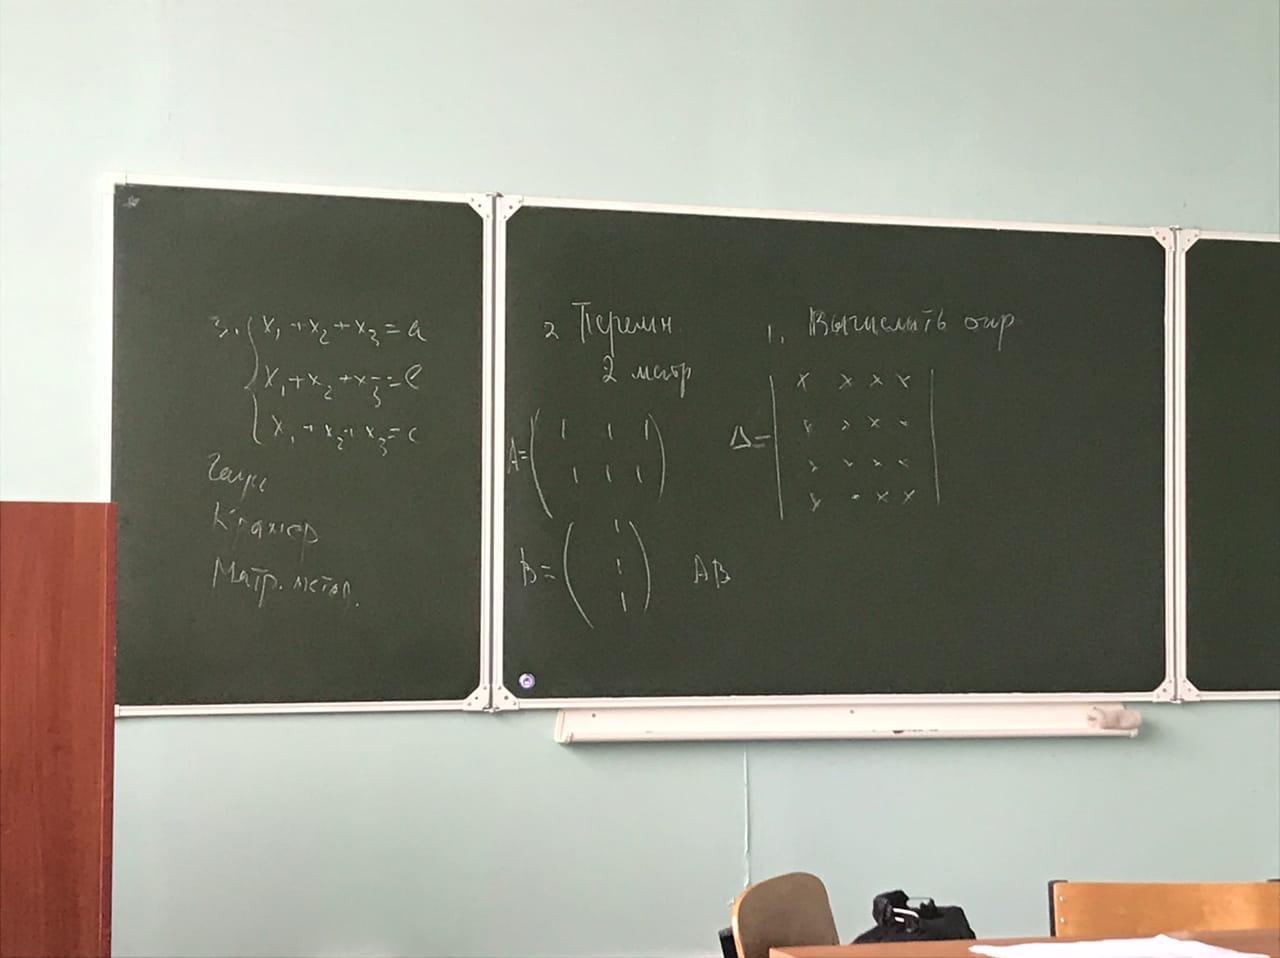 3. { x₁ + x₂ + x₃ = a
x₁ + x₂ + x₃ = b
x₁ + x₂ + x₃ = c
Гаусс
Крамер
Матр. метод.
2 Перемн.
2 матр
A = ( 1 1 1
1 1 1 )
B = ( 1
1
1 ) AB
1. Вычислить опр
Δ = | x x x x
x x x x
x x x x
x x x x |